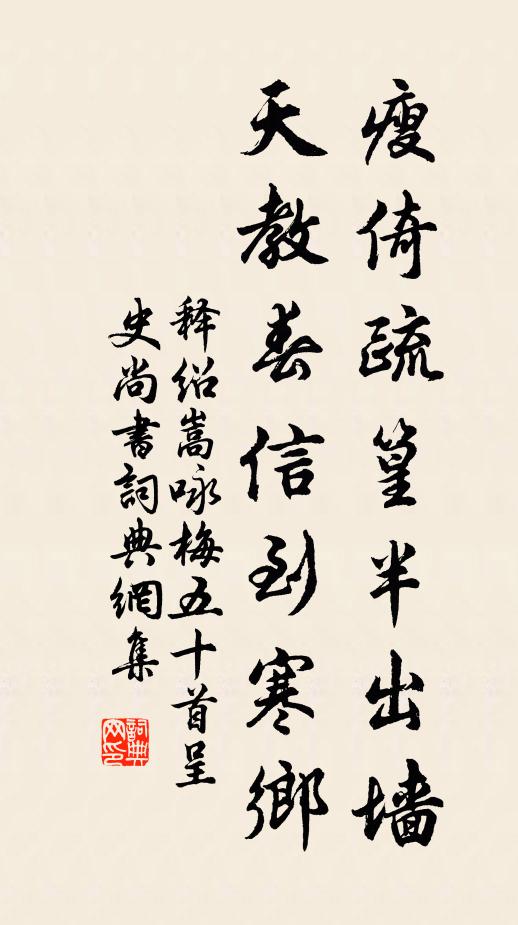 瘦倚疏篁半出墙
天教春信到寒鄉
释绍嵩咏梅五十首呈
史尚書詞典網集
詞典网印